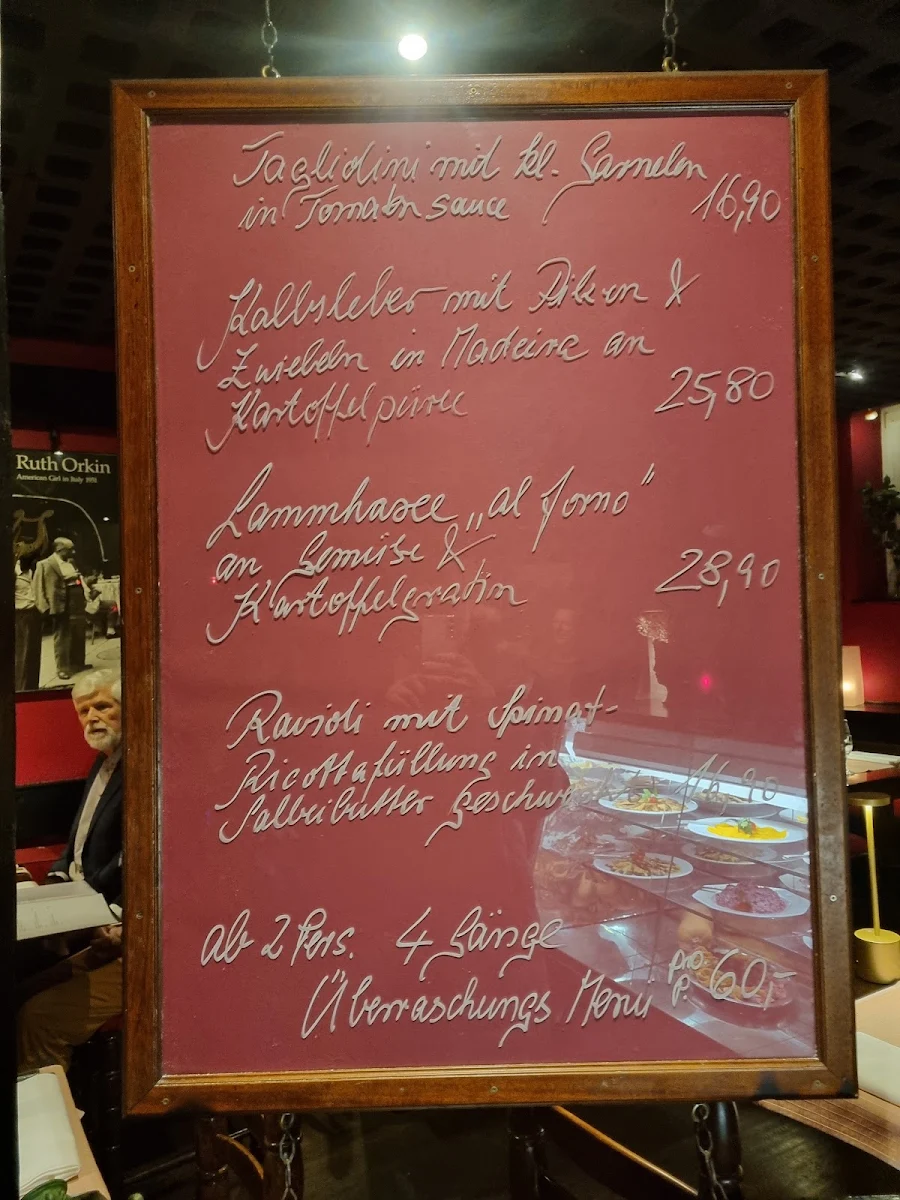 Tagliolini mit kl. Garnelen
in Tomatensauce 16,90
Kalbsleber mit Birnen &
Zwiebeln in Madeira an
Kartoffelpüree 25,80
Lammhaxe „al forno"
an Gemüse &
Kartoffelgratin 28,90
Ravioli mit Spinat-
Ricottafüllung in
Salbeibutter 16,90
ab 2 Pers. 4 Gänge
Überraschungs Menü pro P. 60,-
Ruth Orkin
American Girl in Italy 1951